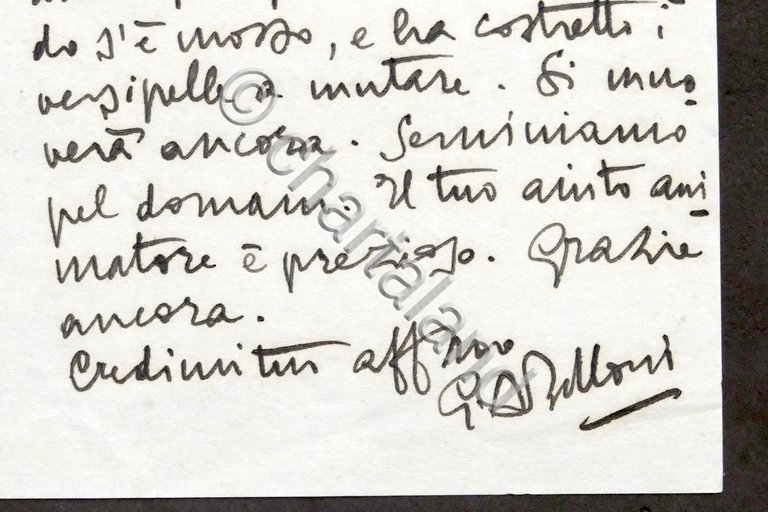 do s'è mosso, e ha costretto i
versipelle a mutare. Si muo
verà ancora. Seminiamo
pel domani. Il tuo aiuto ani
matore è prezioso. Grazie
ancora.
Credimi tuo aff.mo
G. A. Belloni
© Chartaland